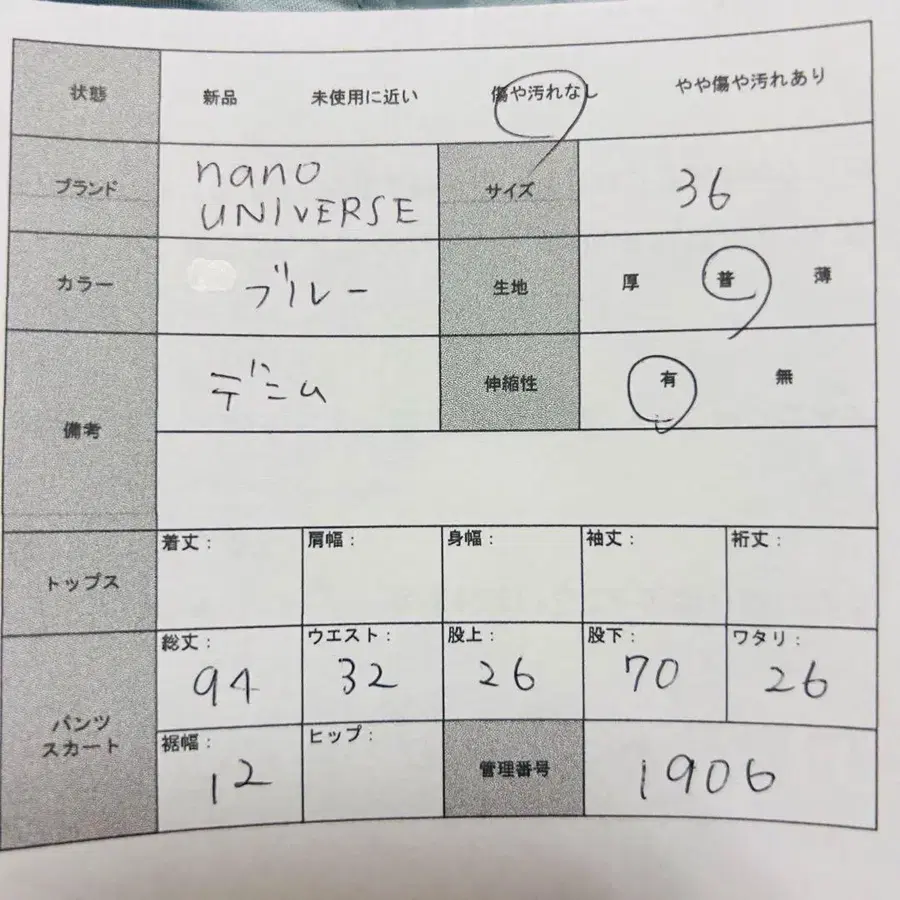 状態 新品 未使用に近い 傷や汚れなし やや傷や汚れあり
ブランド nano UNIVERSE サイズ 36
カラー ブルー 生地 厚 普 薄
備考 デニム 伸縮性 有 無
トップス 着丈: 肩幅: 身幅: 袖丈: 裄丈:
パンツ スカート 総丈: 94 ウエスト: 32 股上: 26 股下: 70 ワタリ: 26
裾幅: 12 ヒップ: 管理番号 1906